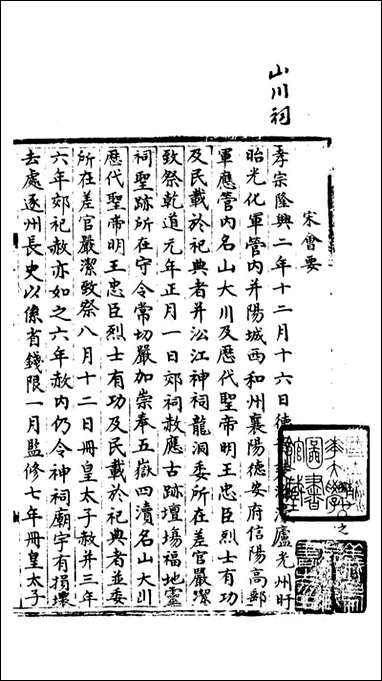 山川祠
宋會要
孝宗隆興二年十二月十六日德 廬光州盱
眙光化軍管內并陽城西和州襄陽德安府信陽高郵
軍應管內名山大川及歷代聖帝明王忠臣烈士有功
及民載於祀典者并㳂江神祠龍洞委所在差官嚴潔
致祭乾道元年正月一日郊祀赦應古跡壇塲福地靈
祠聖跡所在守令常切嚴加崇奉五嶽四瀆名山大川
歷代聖帝明王忠臣烈士有功及民載於祀典者並委
所在差官嚴潔致祭八月十二日冊皇太子赦并三年
六年郊祀赦亦如之六年赦內仍令神祠廟宇有損壞
去處逐州長吏以係省錢限一月監修七年冊皇太子